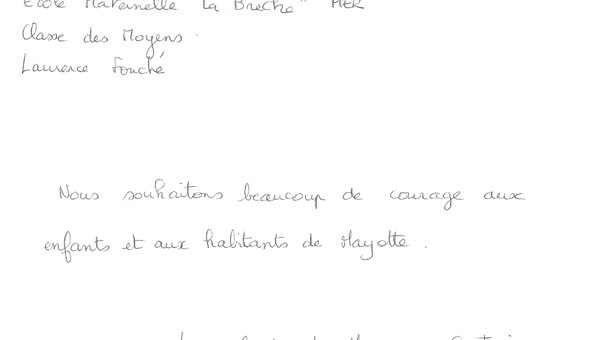 Ecole Maternelle "La Brèche" MER
Classe des Moyens
Laurence Fouché
Nous souhaitons beaucoup de courage aux
enfants et aux habitants de Mayotte.